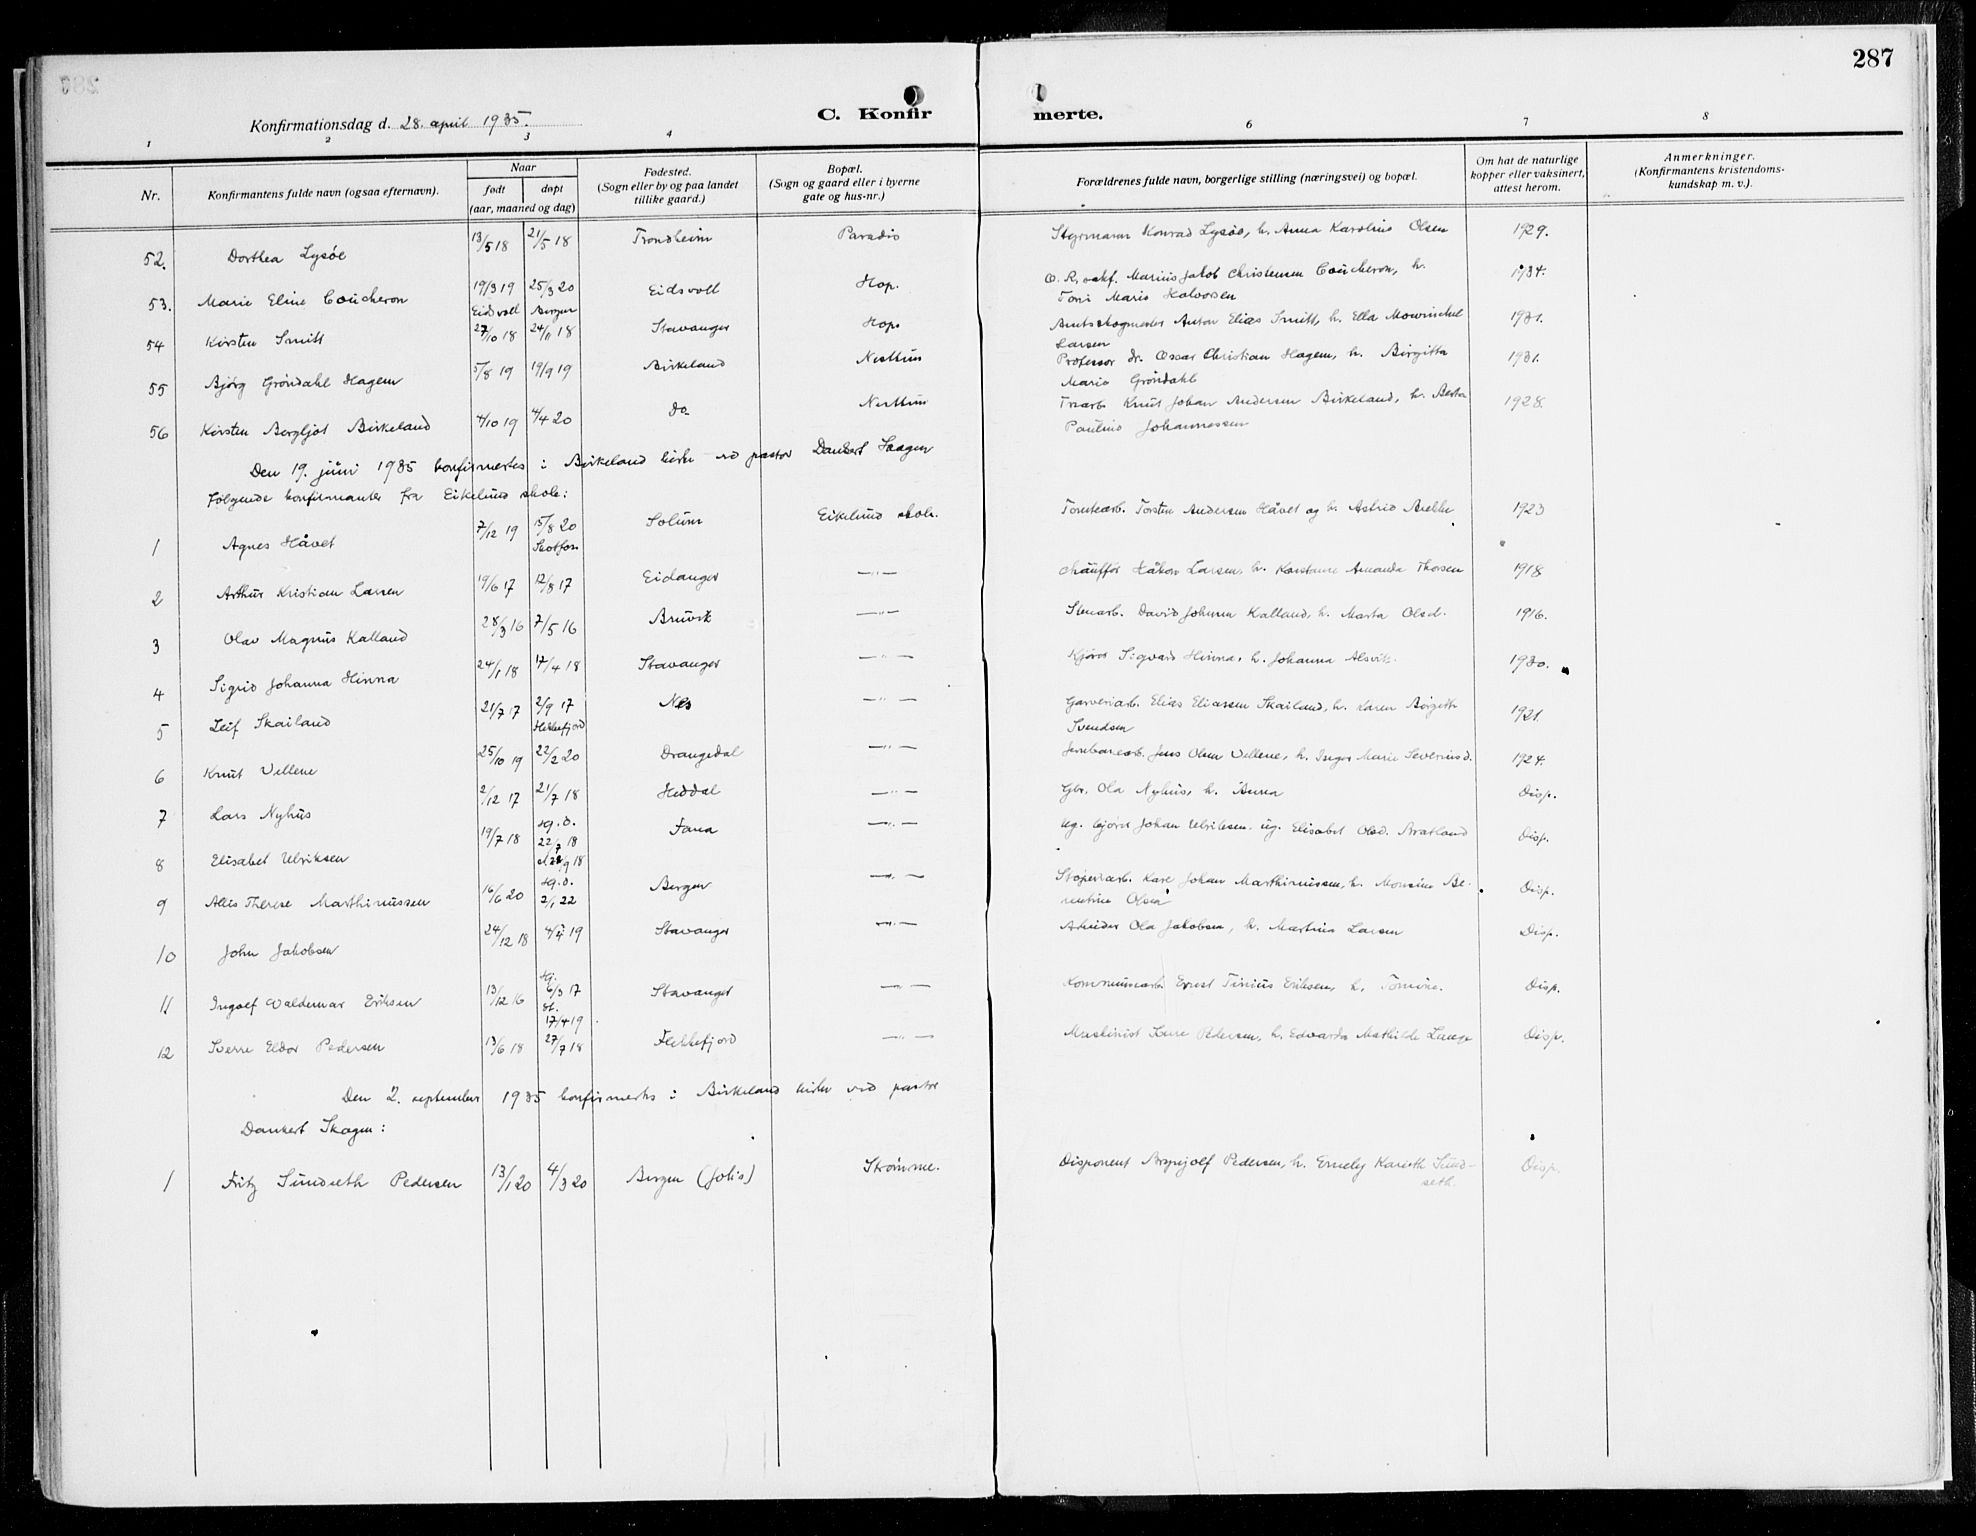 287
Konfirmationsdag d. 28. april 1935.
C. Konfirmerte.
1 2 3 4 6 7 8
Nr.
Konfirmantens fulde navn (ogsaa efternavn).
Naar
født
døpt
(aar, maaned og dag)
Fødested.
(Sogn eller by og paa landet
tillike gaard.)
Bopæl.
(Sogn og gaard eller i byerne
gate og hus-nr.)
Forældrenes fulde navn, borgerlige stilling (næringsvei) og bopæl.
Om hat de naturlige
kopper eller vaksinert,
attest herom.
Anmerkninger.
(Konfirmantens kristendoms-
kundskap m. v.).
52. Dorthea Lysøe 13/5 18 21/5 18 Trondheim Paradis Styrmann Konrad Lysøe, h. Anna Karoline Olsen 1929.
53. Marie Eline Coucheron 19/3 19 25/3 20 Eidsvoll Hop. O. R. sakf. Marius Jakob Christensen Coucheron, h. 1934.
Eidsvoll Bergen Toni Marie Halvorsen
54 Kirsten Smitt 27/10 18 24/11 18 Stavanger Hop. Amtsskogmester Anton Elias Smitt, h. Ella Mowinckel 1931.
Larsen
55 Bjørg Grøndahl Hagem 5/8 19 19/9 19 Birkeland Nesttun Professor dr. Oscar Christian Hagem, h. Birgitta 1931.
Marie Grøndahl
56 Kirsten Bergljot Birkeland 4/10 19 4/4 20 do Nesttun Trearb. Knut Johan Andersen Birkeland, h. Berta 1928.
Pauline Johannessen
Den 19. juni 1935 konfirmertes i Birkeland kirke ved pastor Dankert Skagen
følgende konfirmanter fra Eikelund skole:
1 Agnes Håvet 7/12 19 15/8 20 Solum Eikelund skole. Tomtearb. Torsten Andersen Håvet og h. Astrid 1923
Skotfoss
2 Arthur Kristian Larsen 19/6 17 12/8 17 Eidanger —„— Chauffør Håkon Larsen, h. Konstanse Amanda Thorsen 1918
3 Olav Magnus Kalland 28/3 16 7/5 16 Bruvik —„— Stenarb. David Johnsen Kalland, h. Marta Olsd. 1916.
4 Sigrid Johanna Hinna 24/1 18 17/4 18 Stavanger —„— Kjører Sigvard Hinna, h. Johanna Alsvik. 1930.
5 Leif Skailand 21/7 17 2/9 17 Nes —„— Garveriarb. Elias Eliassen Skailand, h. Karen Birgitte 1921.
Flekkefjord Svendsen
6 Knut Vellene 25/10 19 22/2 20 Drangedal —„— Jernbanearb. Jens Olsen Vellene, h. Inger Marie Severinsd. 1924.
7 Lars Nyhus 2/12 17 21/7 18 Heddal —„— Gbr. Ola Nyhus, h. Anna Disp.
8 Elisabet Ulriksen 19/7 18 hj. d. 22/7 18 Fana —„— Ug. kjører Johan Ulriksen. ug. Elisabet Olsd. Bratland Disp.
9 Allis Therese Marthinussen 16/6 20 hj. d. 2/1 22 Bergen —„— Støperiarb. Kare Johan Marthinussen, h. Monsine Be- Disp.
rentine Olsen
10 John Jakobsen 24/12 18 4/4 19 Stavanger —„— Arbeider Ola Jakobsen, h. Martina Larsen Disp.
11 Ingolf Valdemar Eriksen 13/12 16 hj. 6/3 17 Stavanger —„— Kommunearb. Ernst Tinius Eriksen, h. Tomine. Disp.
st. 17/4 19
12 Sverre Eldor Pedersen 13/6 18 27/7 18 Flekkefjord —„— Maskinist Pedersen, h. Edvarda Mathilde Lange Disp.
Den 2. september 1935 konfirmerts i Birkeland kirke ved pastor
Dankert Skagen:
1 Fritz Sundseth Pedersen 13/1 20 4/3 20 Bergen (Johs) Strømme. Disponent Brynjolf Pedersen, h. Emely Karieth Sund- Disp.
seth.